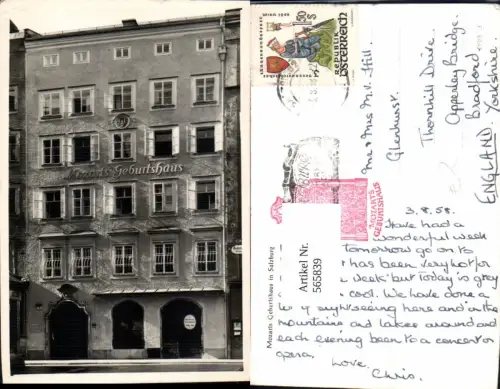 Mozarts Geburtshaus
Mozarts Geburtshaus in Salzburg
REPUBLIK
ÖSTERREICH
Artikel Nr.
565839
MOZARTS
GEBURTSHAUS
Mr & Mrs M.V. Hill.
Glenhurst.
Thornhill Drive.
Apperley Bridge.
Bradford
Yorkshire.
ENGLAND
3.8.58.
Have had a
wonderful week
tomorrow go on to
has been very hot for
week but today is grey
cool. We have done a
of sightseeing here and in the
mountains and lakes around and
each evening been to a concert or
opera.
Love,
Chris.